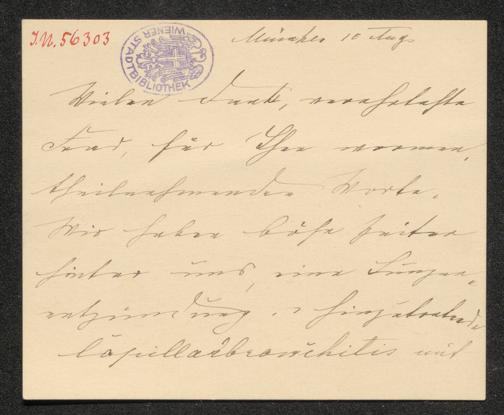 I.N. 56303
WIENER STADTBIBLIOTHEK
München 10 Aug
Vielen Dank, verehrteste
Frau, für Ihre warmen,
theilnehmenden Worte.
Wir haben böse Zeiten
hinter uns, eine Lungen-
entzündung hinzutretende
Capillarbronchitis mit